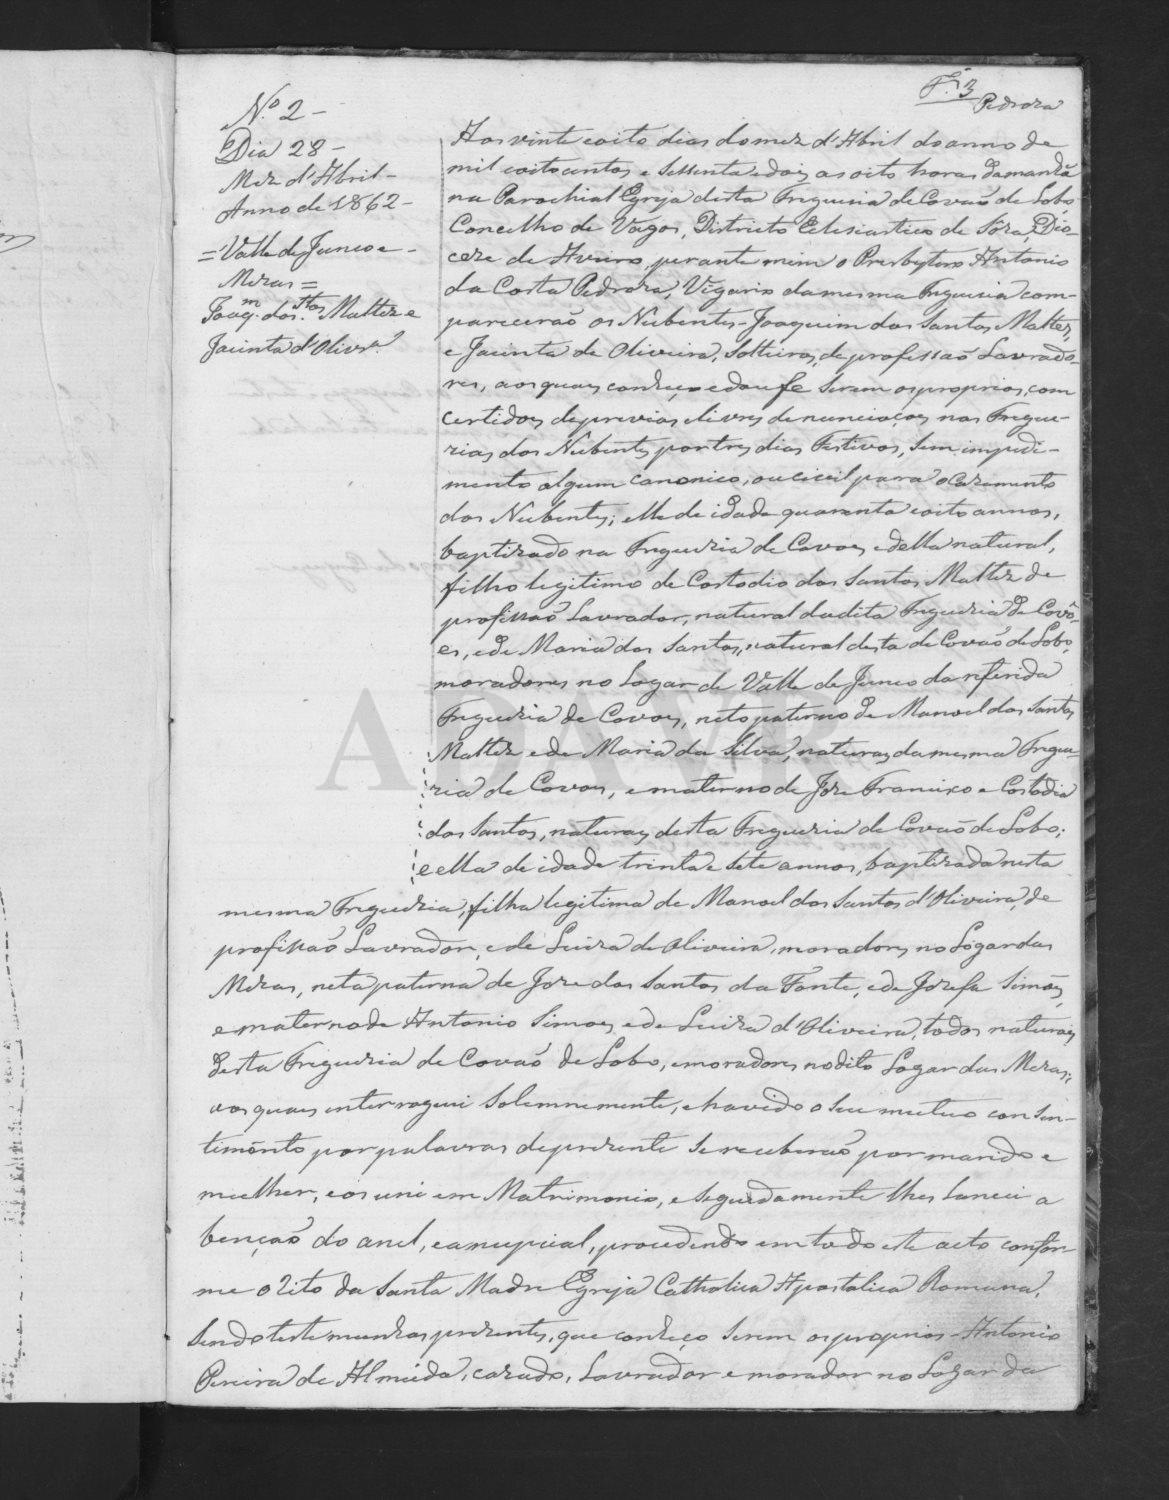 Fl. 3
Pedroza
N.º 2 -
Dia 28 -
Mez d'Abril -
Anno de 1862 -
= Valle de Junco e -
Mezas =
Joaq.m dos S.tos Maltez e
Jacinta d'Olivr.a
Aos vinte e oito dias do mez d'Abril do anno de
mil e oitocentos e sessenta e dois as oito horas da manhã
na Parochial Egreja desta Freguezia de Covaõ de Lobo,
Concelho de Vagos, Districto Eclesiastico de Sóza, Dio-
ceze de Aveiro, perante mim o Presbytero Antonio
da Costa Pedroza, Vigario da mesma Freguezia com-
pareceraõ os Nubentes - Joaquim dos Santos Maltez,
e Jacinta de Oliveira, solteiros, de profissaõ Lavrado-
res, aos quaes conheço e dou fe serem os proprios, com
certidoes de previas e livres denunciaçoes nas Fregue-
zias dos Nubentes por tres dias Festivos, sem impedi-
mento algum canonico, ou civil para o Cazamento
dos Nubentes; elle de idade quarenta e oito annos,
baptizado na Freguezia de Covoes e della natural,
filho legitimo de Costodio dos Santos Maltez de
profissaõ Lavrador, natural da dita Freguezia de Covõ-
es, e de Maria dos Santos, natural desta de Covaõ de Lobo,
moradores no Logar de Valle de Junco da referida
Freguezia de Covoes, neto paterno de Manoel dos Santos
Maltez e de Maria da Silva, naturaes da mesma Fregue-
zia de Covoes, e materno de Joze Francisco e Costodia
dos Santos, naturaes desta Freguezia de Covaõ de Lobo;
e ella de idade trinta e sete annos, baptizada nesta
mesma Freguezia, filha legitima de Manoel dos Santos d'Oliveira, de
profissaõ Lavrador, e de Luiza de Oliveira, moradores no Logar das
Mezas, neta paterna de Joze dos Santos da Fonte, e de Jozefa Simões,
e materna de Antonio Simoes e de Luiza d'Oliveira, todos naturaes
desta Freguezia de Covaõ de Lobo, e moradores no dito Logar das Mezas;
aos quaes interroguei solemnemente, e havido o seu mutuo consen-
timento por palavras de prezente se receberaõ por marido e
mulher, e os uni em Matrimonio, e seguidamente lhes lancei a
bençaõ do anel, e a nupcial, procedendo em todo este acto confor-
me o Rito da Santa Madre Egreja Catholica Apostolica Romana,
Sendo testemunhas prezentes, que conheço serem os proprios - Antonio
Pereira de Almeida, cazado, Lavrador e morador no Logar da
ADAVR